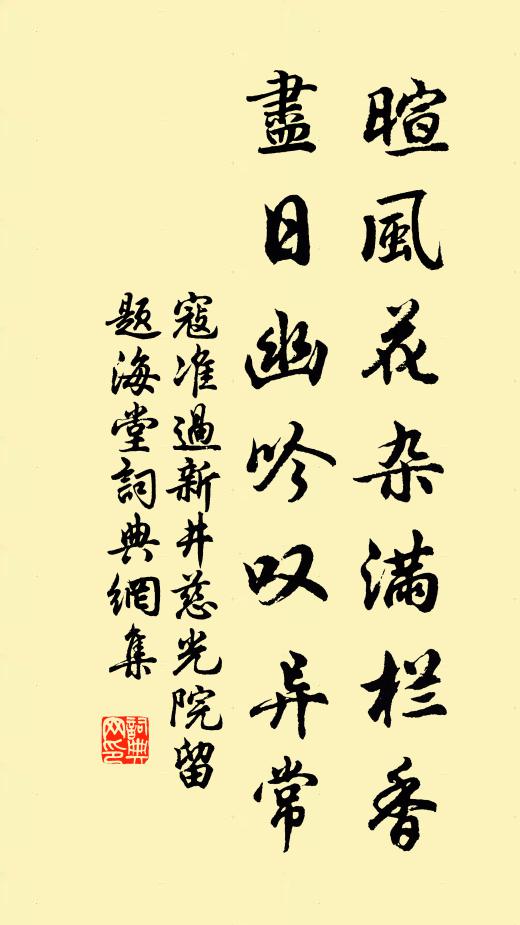 暄風花杂满栏香
盡日幽吟叹异常
寇准過新井慈光院留
题海堂詞典網集
詞典
网印